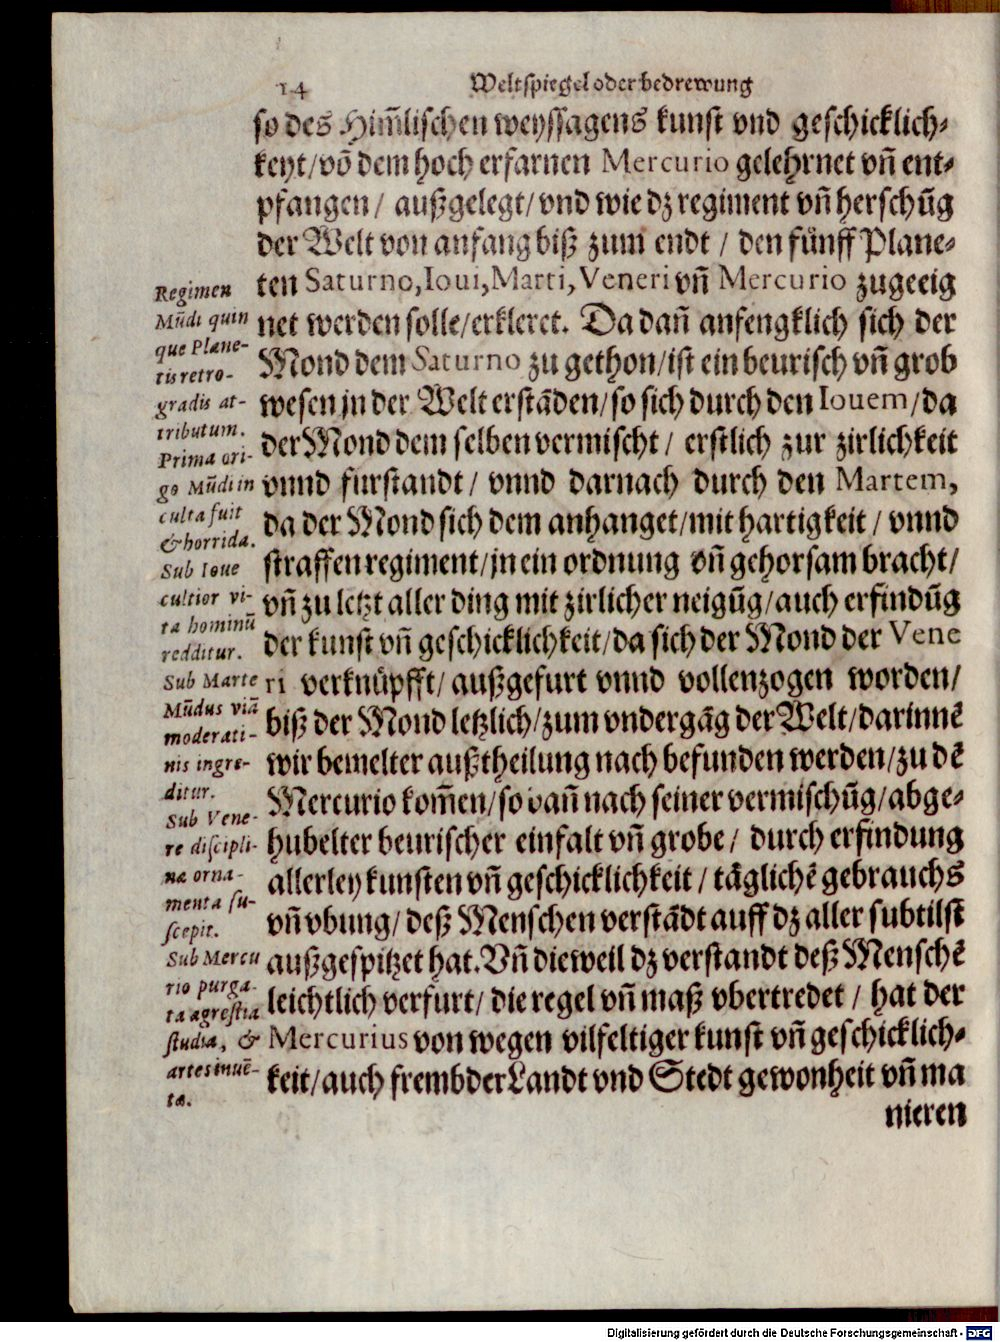 14
Weltspiegel oder bedrewung
so des Him̃lischen weyssagens kunst vnd geschicklich-
keyt/võ dem hoch erfarnen Mercurio gelehrnet vñ ent-
pfangen/ außgelegt/vnd wie dz regiment vñ herschũg
der Welt von anfang biß zum endt / den fünff Plane-
ten Saturno,Ioui,Marti,Veneri vñ Mercurio zugeeig
net werden solle/erkleret. Da dañ anfengklich sich der
Mond dem Saturno zu gethon/ist ein beurisch vñ grob
wesen jn der Welt erstãden/so sich durch den Iouem/da
der Mond dem selben vermischt / erstlich zur zirlichkeit
vnnd furstandt / vnnd darnach durch den Martem,
da der Mond sich dem anhanget/mit hartigkeit / vnnd
straffen regiment/jn ein ordnung vñ gehorsam bracht/
vñ zu letzt aller ding mit zirlicher neigũg/auch erfindũg
der kunst vñ geschicklichkeit/da sich der Mond der Vene
ri verknüpfft/ außgefurt vnnd vollenzogen worden/
biß der Mond letzlich/zum vndergãg der Welt/darinnẽ
wir bemelter außtheilung nach befunden werden/zu dẽ
Mercurio kom̃en/so dañ nach seiner vermischũg/abge-
hubelter beurischer einfalt vñ grobe/ durch erfindung
allerley kunsten vñ geschicklichkeit / täglichẽ gebrauchs
vñ vbung/ deß Menschen verstãdt auff dz aller subtilst
außgespitzet hat. Vñ dieweil dz verstandt deß Menschẽ
leichtlich verfurt/ die regel vñ maß vbertredet / hat der
Mercurius von wegen vilfeltiger kunst vñ geschicklich-
keit/auch frembder Landt vnd Stedt gewonheit vñ ma
nieren
Regimen
Mũdi quin
que Plane-
tis retro-
gradis at-
tributum.
Prima ori-
go Mũdi in
culta fuit
& horrida.
Sub Ioue
cultior vi-
ta hominũ
redditur.
Sub Marte
Mũdus viã
moderati-
nis ingre-
ditur.
Sub Vene-
re discipli-
na orna-
menta su-
scepit.
Sub Mercu
rio purga-
ta agrestia
studia, &
artes inuẽ-
ta.
Digitalisierung gefördert durch die Deutsche Forschungsgemeinschaft - DFG